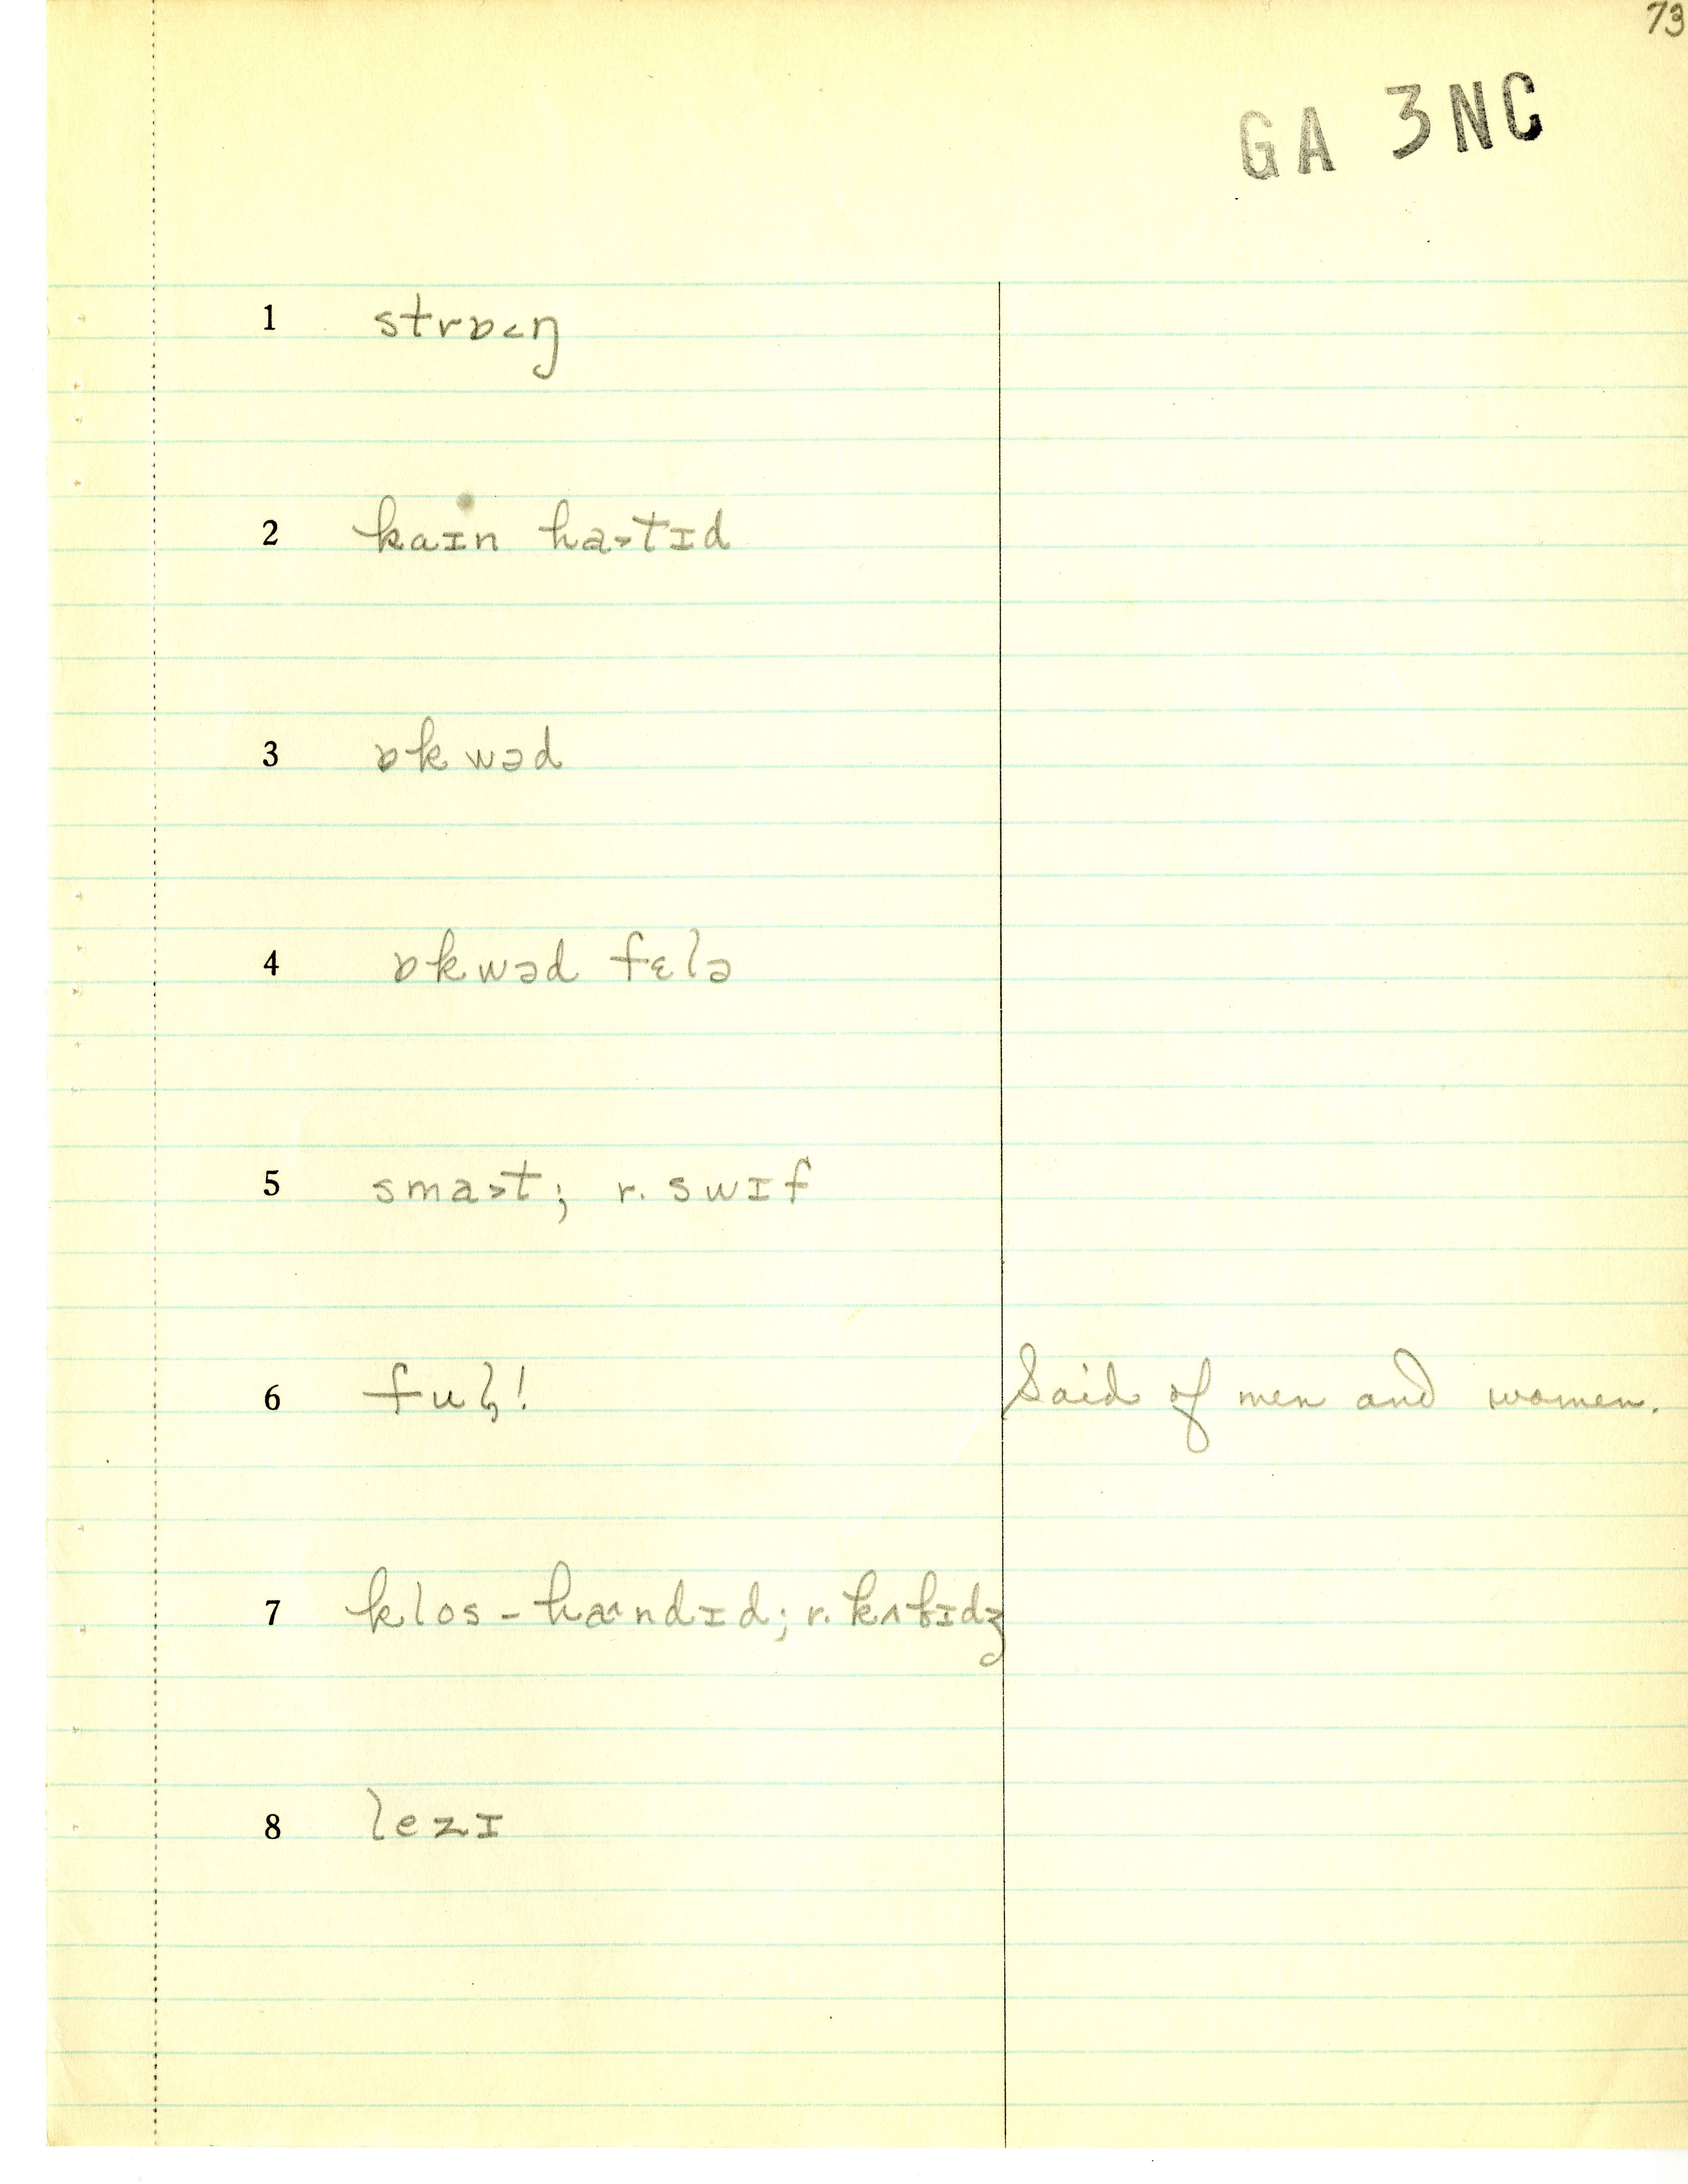 73
GA 3NC
1 strɒ˂ŋ
2 kaɪn ha˃tɪd
3 ɒkwəd
4 ɒkwəd fɛlə
5 sma˃t; r. swɪf
6 ful̩! Said of men and women.
7 klos-hæ^ndɪd; r. kʌbɪdʒ
8 lezɪ